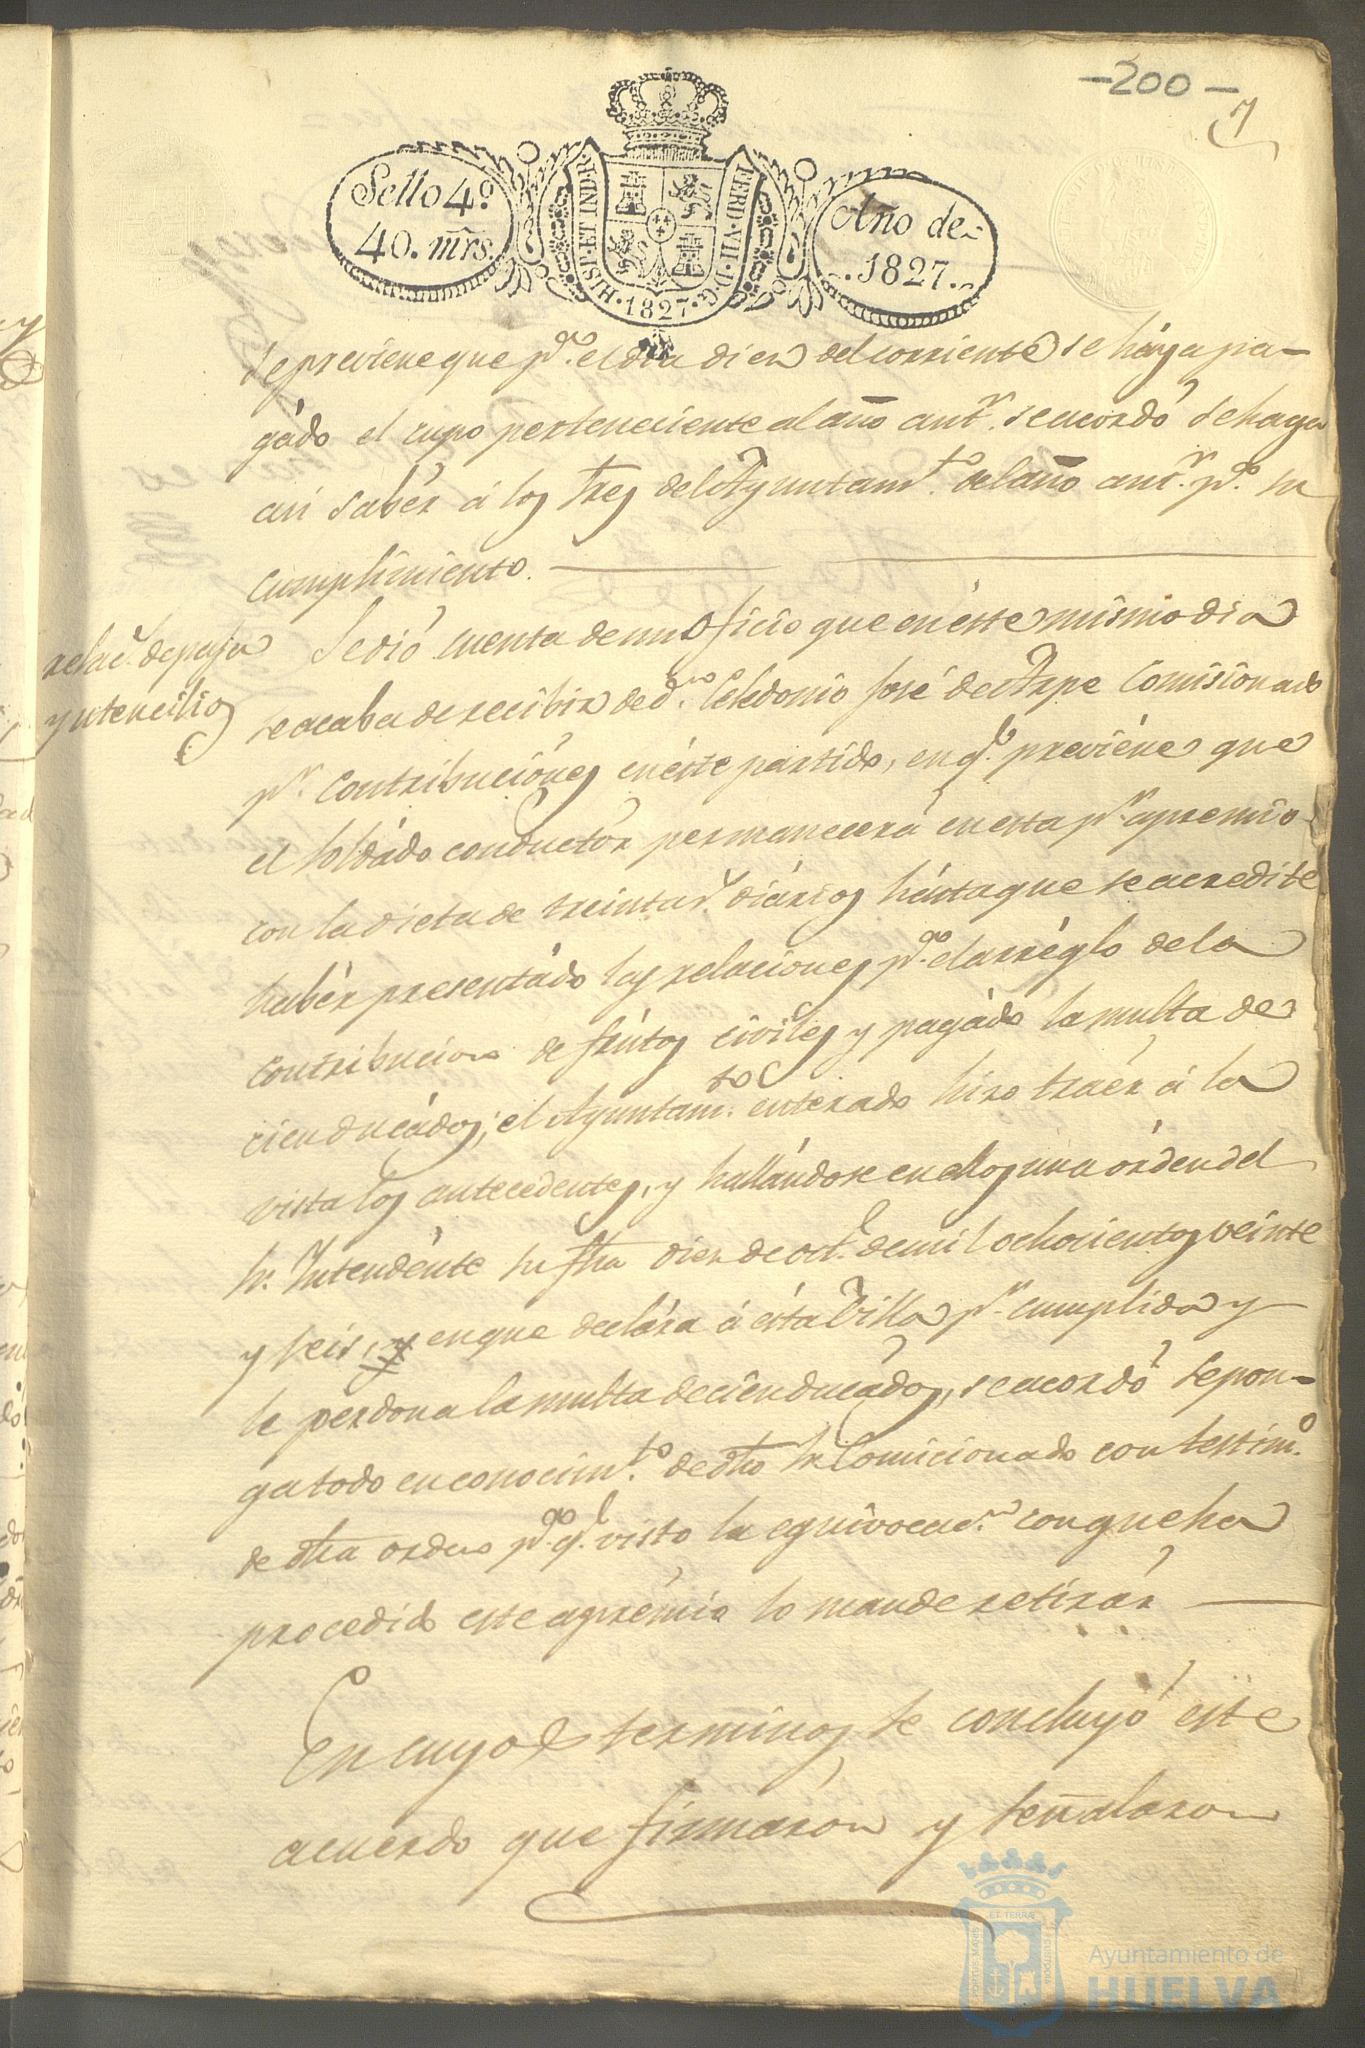 -200-
7
Sello 4º
40. mrs.
HISP. ET IND. R.
FERD. VII. D. G.
1827
Año de
1827.
se previene que pª. el dia diez del corriente se háya pa-
gádo el cupo perteneciente al año antr. se acordó se haga
asi sabér á los Sres del Ayuntamto. del año antr. pª. su
cumplimiento.
relacs. de paja
y utencilios
Se dió cuenta de un oficio que en éste mismo dia
se acaba de recibir de dn. Celedonio José de Arpe Comisionado
pr. Contribuciónes en éste partido, en q. previéne que
el soldádo conductór permanecerá en esta pr. apremio
con la dieta de treinta rs. diários hásta que se acredite
habér presentádo las relaciones pª. el arréglo de la
contribucion de frutos civiles y pagádo la multa de
cien ducádos; el Ayuntamto. enterado hizo traér á la
vista los antecedentes, y hallándose en ellos una órden del
Sr. Intendénte su fha diez de oct.e de mil ochocientos veinte
y seis, y en que declára á ésta Villa pr. cumplida y
le perdona la multa de cien ducádos, se acordó se pon-
ga todo en conocimto. de dho Sr. Comicionado con testimo.
de dha orden pª. q. visto la equivocacn. con que ha
procedido este aprémio lo mande retirár
En cuyos terminos se concluyó este
acuerdo que firmáron y señalaron
Ayuntamiento de
HUELVA